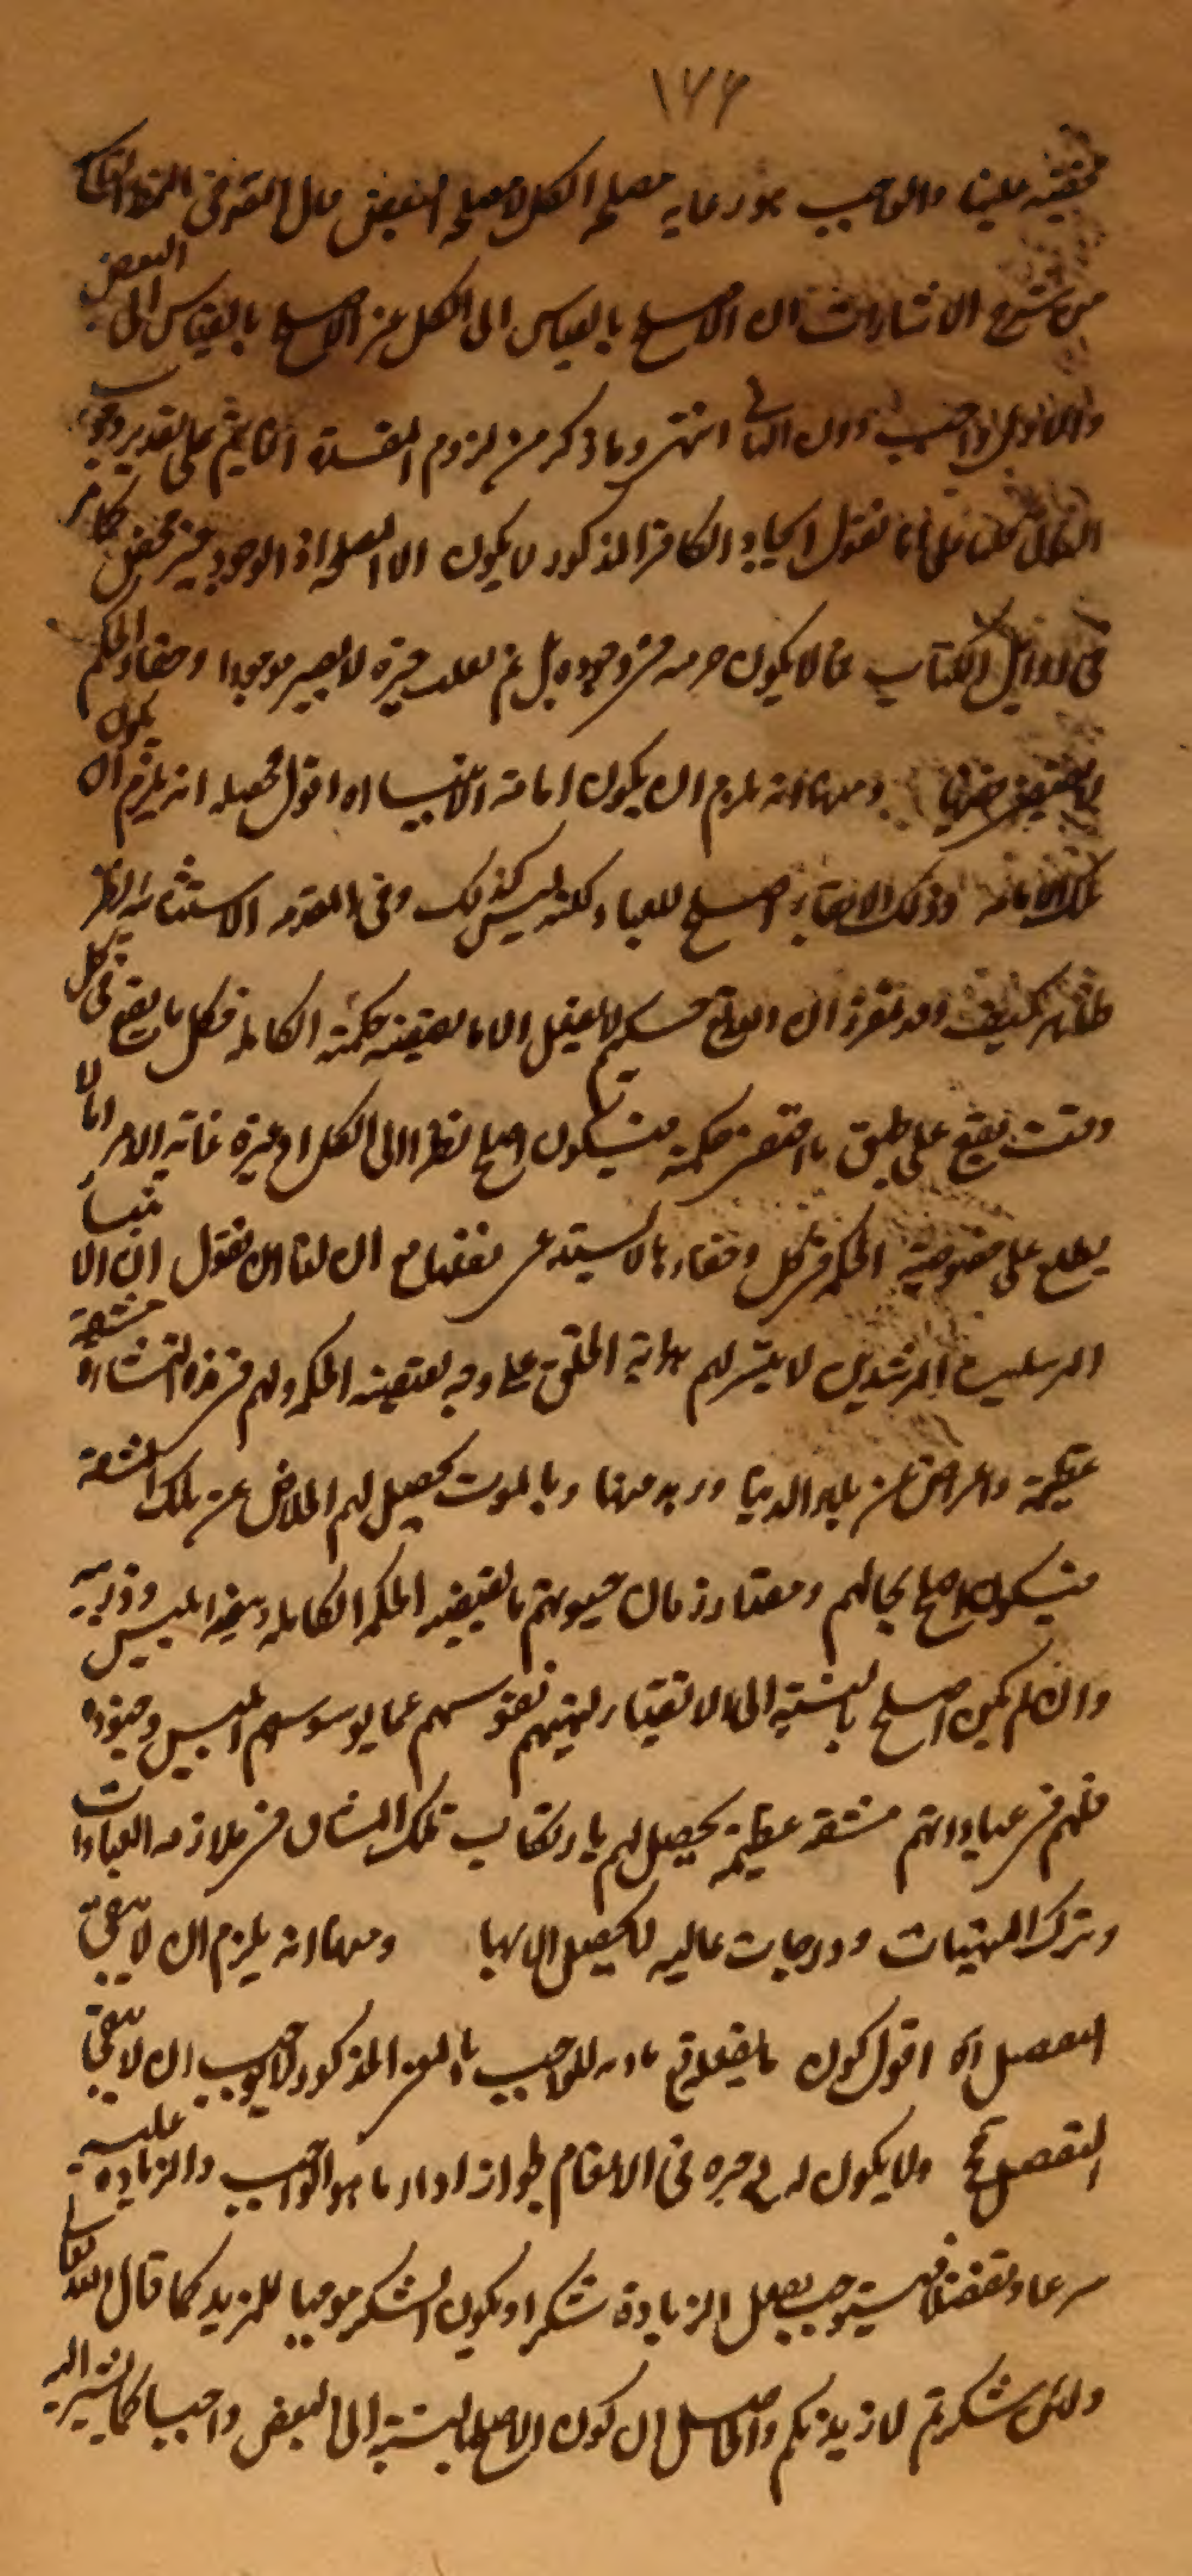 ١٦٦
علينا والواجب هو رعاية مصلحة الكل لا مصلحة البعض قال المحقق في النمط السابع
من شرح الاشارات ان الاصلح بالقياس الى الكل غير الاصلح بالقياس الى البعض
والاول واجب دون الثاني انتهى وما ذكر من لزوم المفسدة انما يتم على تقدير وجوب
الثاني انا نقول ايجاد الكافر المذكور لا يكون الا لمصلحة اذ الوجود خير محض كما مر
في اوائل الكتاب فما لا يكون خيره في وجوده بل لم يغلب خيره لا يصير موجودا وخفاء الحكم
لا يقتضي نفيها ومنها انه يلزم ان يكون اماتة الانبياء اه اقول محصله انه يلزم ان يكون
تلك الاماتة وذلك الابقاء اصلح للعباد ولكنه ليس كذلك وفي المقدمة الاستثنائية نظر
ظاهر كيف وقد تقرر ان الواقع حكيم لا يفعل الا ما يقتضيه حكمته الكاملة فكل ما يقع في كل
وقت يقع على طبق ما اقتضى حكمته فيكون اصلح نظرا الى الكل او غيره غاية الامر انا لا
يطلع على خصوصية الحكمة في كل وخفاؤها لا يستدعي نفيها مع ان لنا ان نقول ان الانبياء
المرسلين المرشدين لا يتيسر لهم هداية الخلق على وجه يقتضيه الحكمة ولهم في هذه النشأة مشقة
عظيمة واعراض عن بلاد الدنيا وزهد منها وبالموت يحصل لهم الخلاص عن تلك المشقة
فيكون اصلح بحالهم ومقدار زمان حيوتهم ما يقتضيه الحكمة الكاملة وبقية ابليس وذريته
وان لم يكن اصلح بالنسبة الى الاتقياء لنهيهم نفوسهم عما يوسوسهم ابليس وجنوده
فلهم في عباداتهم مشقة عظيمة يحصل لهم بارتكاب تلك المشاق في ملازمة العبادات
وترك المنهيات ودرجات عالية لا يحصل الا بها ومنها انه يلزم ان لا يبقى
التفضل اه اقول كون ما يفعله تع مادة للواجب بالمعنى المذكور لا يوجب ان لا يبقى
التفضل تع ولا يكون له خيرة في الانعام لجواز اداء ما هو الواجب والزيادة عليه
تبرعا وتفضلا فيستوجب بفعل الزيادة شكرا ويكون الشكر موجبا للمزيد كما قال الله تعالى
ولئن شكرتم لازيدنكم والحاصل ان كون الاصلح بالنسبة الى البعض واجبا كما يشير اليه